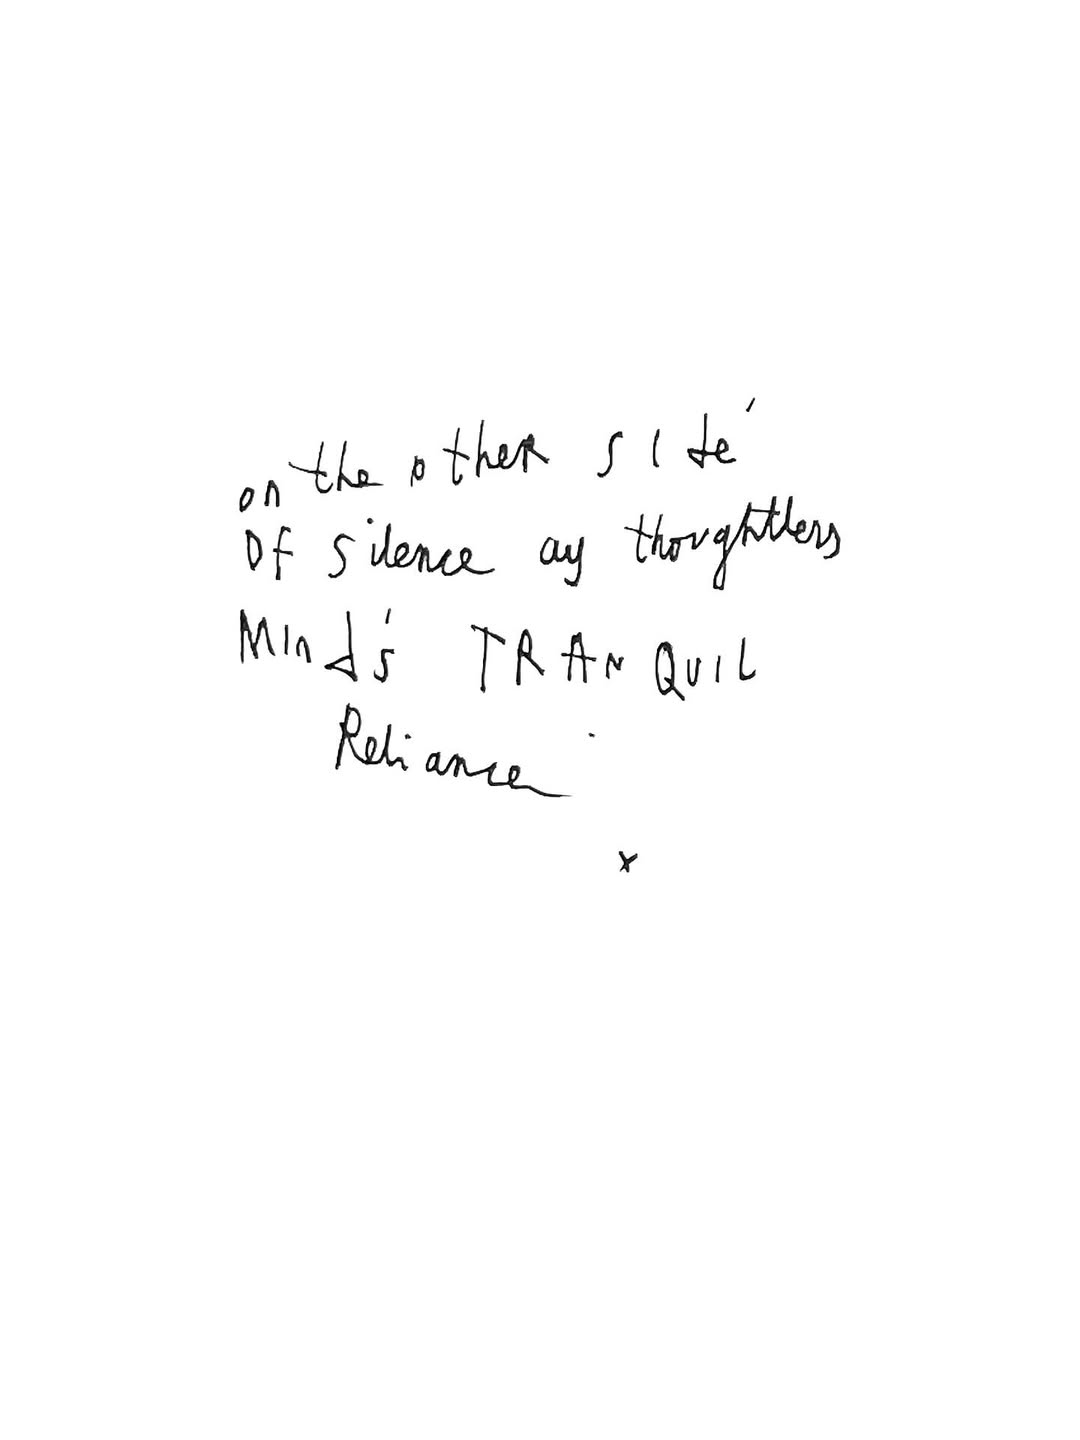 on the other side
Of silence ay thoughtless
Mind's TRANQUIL
Reliance
x